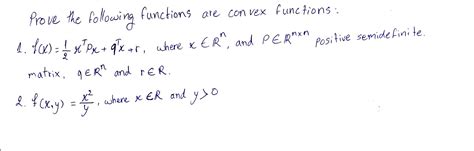 Prove the following functions are convex functions:
1. f(x) = 1/2 xᵀPx + qᵀx + r, where x ∈ Rⁿ, and P ∈ Rⁿˣⁿ positive semidefinite
matrix, q ∈ Rⁿ and r ∈ R.
2. f(x,y) = x²/y, where x ∈ R and y > 0